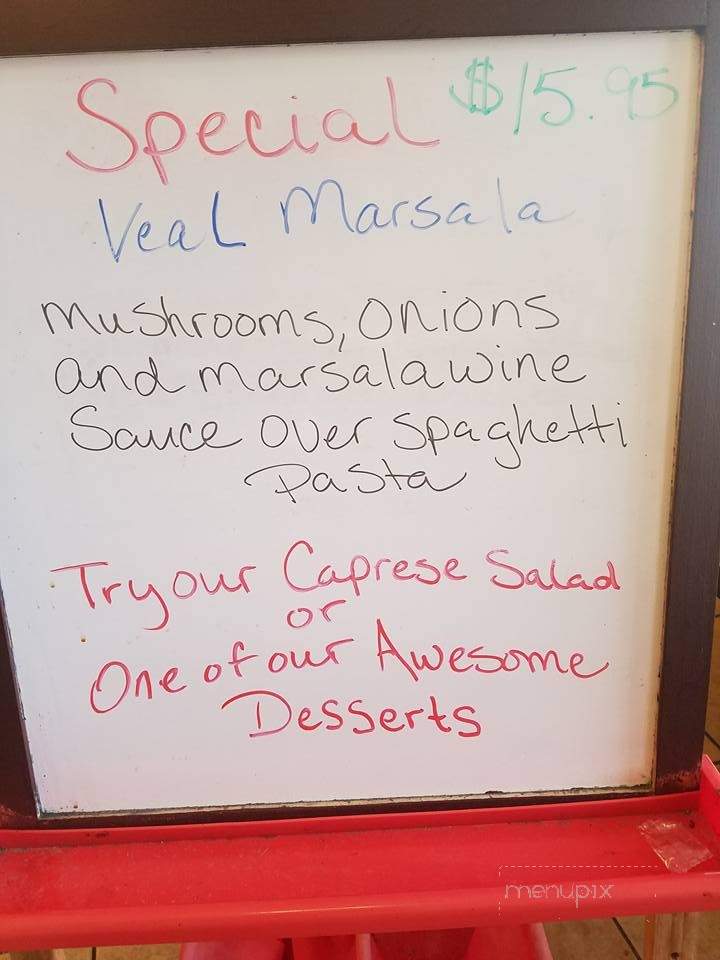 Special $15.95
Veal Marsala
Mushrooms, Onions
and marsala wine
Sauce over spaghetti
Pasta
Try our Caprese Salad
or
One of our Awesome
Desserts
menupix